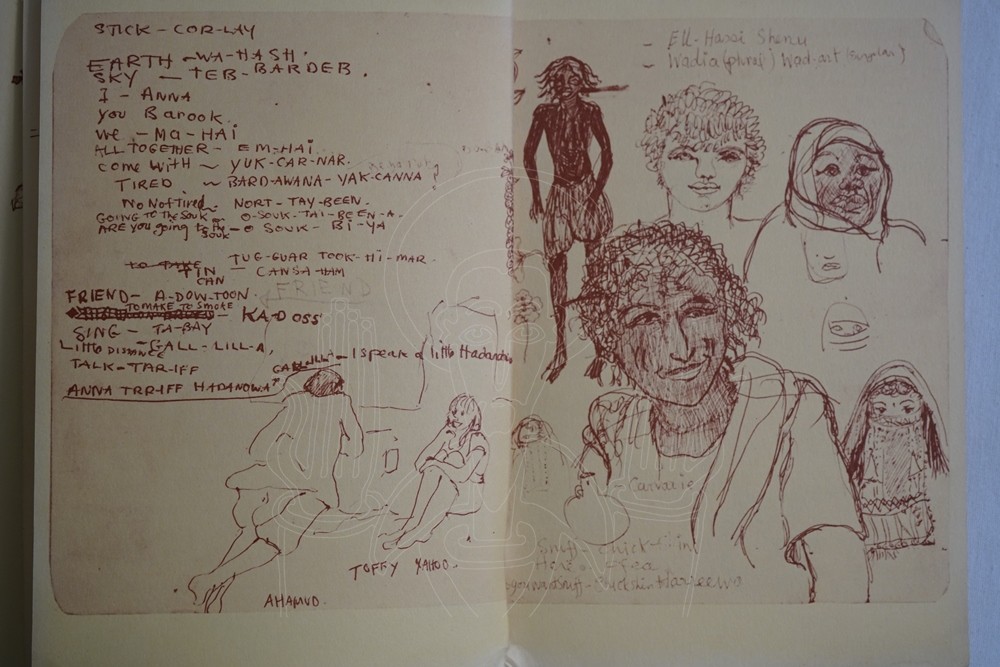 STICK - COR-LAY
EARTH - WA-HASH.
SKY - TEB-BARDEB.
I - ANNA
you Barook.
we. - MA-HAI
ALL TOGETHER - EM-HAI.
come with ~ YUK-CAR-NAR.
TIRED. ~ BARD-AWANA-YAK-CANNA
No Not Tired - NORT-TAY-BEEN.
GOING TO THE SOUK - O-SOUK-TAI-BEEN-A.
ARE you going to the souk - O SOUK - BI-YA
TO TAKE TUG-GUAR TOOK-HI-MAR.
TIN CAN - CANSA-HAM
FRIEND - A-DOW-TOON. FRIEND
TO MAKE TO SMOKE - KA-DOSS
SING - TA-BAY
LITTLE DISTANCE - GALL-LILL-A,
TALK - TAR-IFF - I speak a little
ANNA TRR-IFF HADANOWA
TOFFY YAHOO.
AHAMUD.
- Ell-Hassi Shenu
- Wadia (plural) Wad-art
- Carvarie